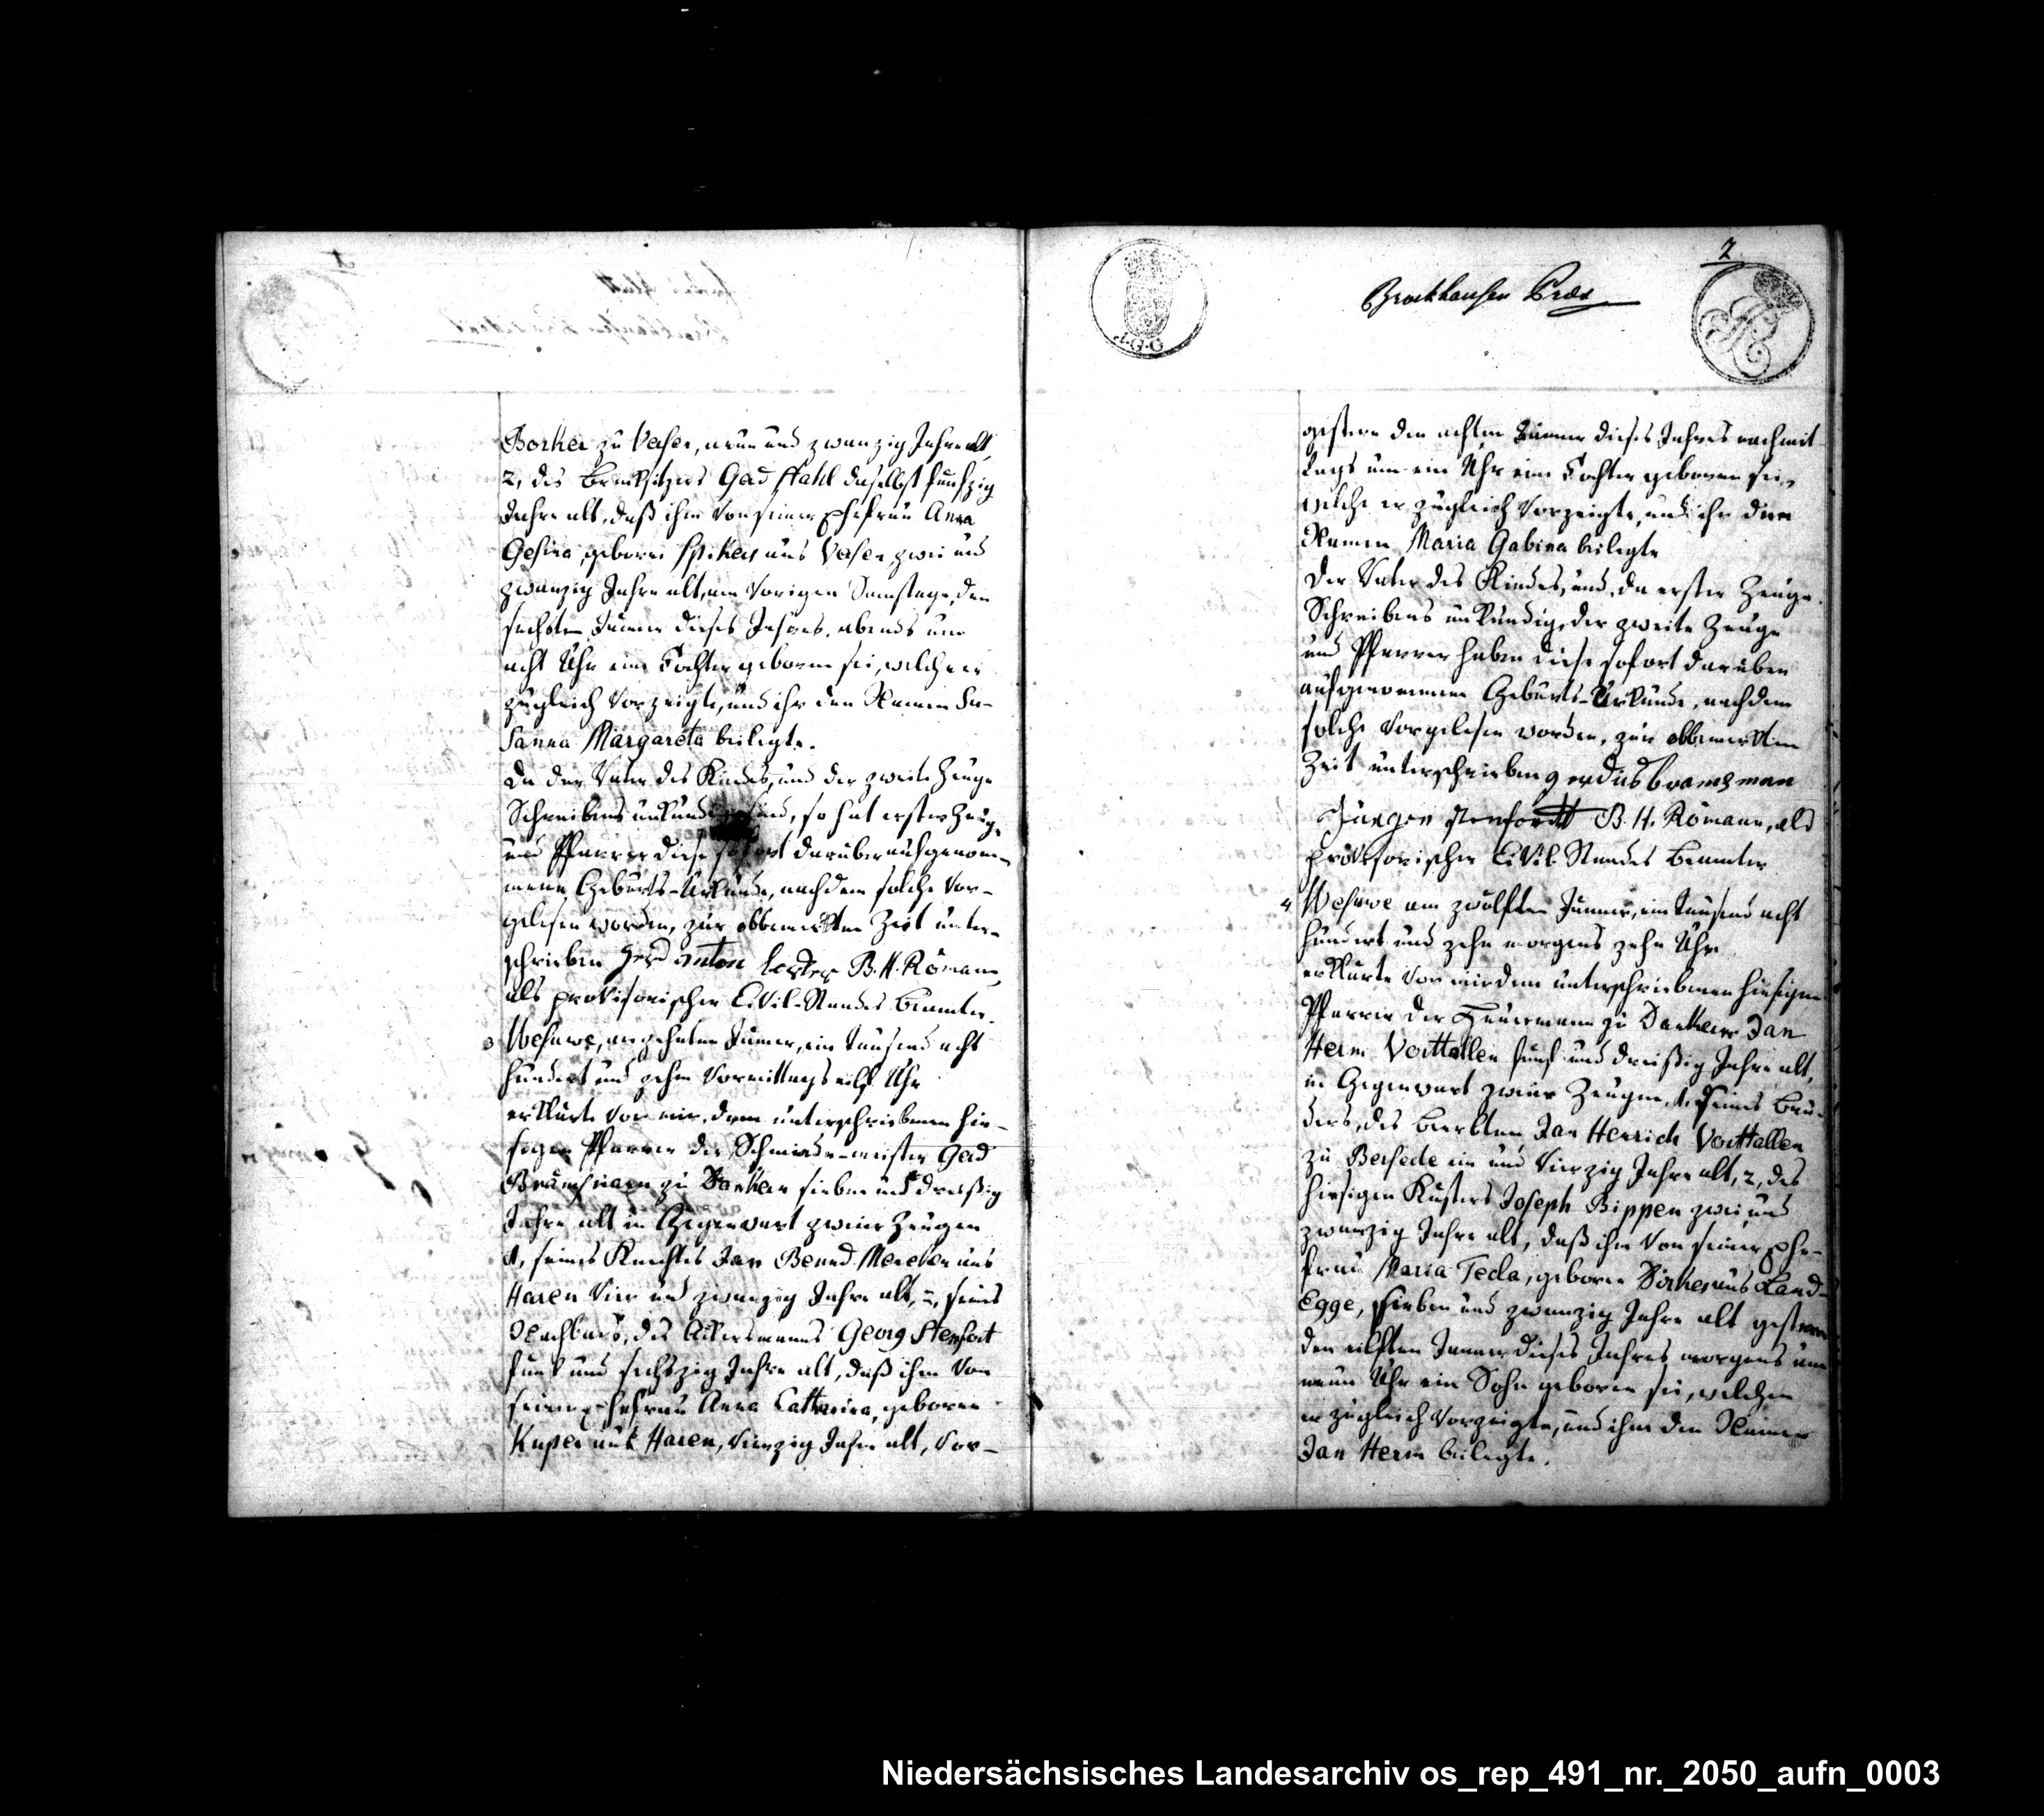 Borker zu Versen, neun und zwanzig Jahre alt,
2, des Brinksitzers Gerd Stahl daselbst funfzig
Jahre alt, daß ihm von seiner Ehefrau Anna
Gesina, geboren aus Versen zwei und
zwanzig Jahre alt, am vorigen Samstage, den
sechsten Jänner dieses Jahres, abends um
acht Uhr eine Tochter geboren sei, welche er
zugleich vorzeigte, und ihr den Namen Su-
sanna Margareta beilegte.
Da der Vater des Kindes, und der zweite Zeuge
Schreibens unkundig sind, so hat erster Zeuge
und Pfarrer diese sofort darüber aufgenom-
mene Geburts-Urkunde, nachdem solche vor-
gelesen worden, zur obbemerkten Zeit unter-
schrieben Gerd anton B. H. Römann,
als provisorischer Civil-Standes Beamter.
3 Wesuwe, am zehnten Jänner, ein tausend acht
hundert und zehn Vormittags eilf Uhr
erklärte vor mir, dem unterschriebenen hie-
sigen Pfarrer der Schmiede-meister Gerd
zu Dankern sieben und dreißig
Jahre alt in Gegenwart zweier Zeugen
1, seines Knechtes Jan Berend aus
Haren vier und zwanzig Jahre alt, 2, seines
Nachbars, des Ackersmanns Georg Stenfort
funf und sechszig Jahre alt, daß ihm von
seiner Ehefrau Anna Catharina, geboren
Kuper aus Haren, vierzig Jahre alt, vor-
2
Brockhausen Præs
J. G. G.
gestern den achten Jänner dieses Jahres nachmit-
tags um ein Uhr eine Tochter geboren sei,
welche er zugleich vorzeigte, und ihr den
Namen Maria Gabina beilegte
Der Vater des Kindes, und, da erster Zeuge
Schreibens unkundig, der zweite Zeuge
und Pfarrer haben diese sofort darüber
aufgenommene Geburts-Urkunde, nachdem
solche vorgelesen worden, zur obbemerkten
Zeit unterschrieben gerdus bramsman
Jurgen stenfordt B. H. Römann, als
provisorischer Civil-Standes Beamter
4 Wesuwe am zwölften Jänner, ein tausend acht
hundert und zehn morgens zehn Uhr
erklärte vor mir dem unterschriebenen hiesigen
Pfarrer der Heuermann zu Dankern Jan
Herm Vorthallen funf und dreißig Jahre alt,
in Gegenwart zweier Zeugen, 1, seines Bru-
ders, des Jan Henrich Vorthallen
zu Bersede ein und vierzig Jahre alt, 2, des
hiesigen Küsters Joseph Bippen zwei und
zwanzig Jahre alt, daß ihm von seiner Ehe-
frau Maria Tecla, geboren Dirkes aus Land-
Egge, sieben und zwanzig Jahre alt gestern
den eilften Jänner dieses Jahres morgens um
neun Uhr ein Sohn geboren sei, welchen
er zugleich vorzeigte, und ihm den Namen
Jan Herm beilegte.
Niedersächsisches Landesarchiv os_rep_491_nr._2050_aufn_0003